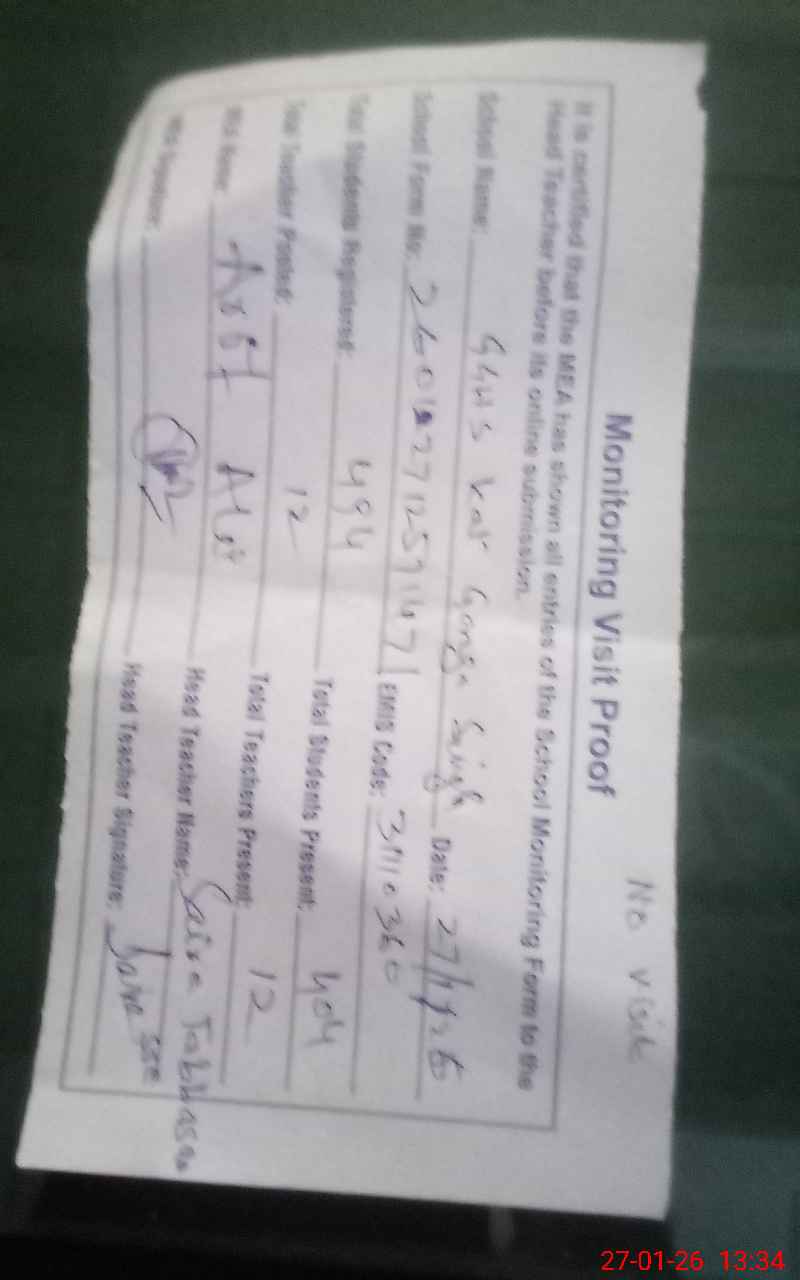 No visit
Monitoring Visit Proof
It is certified that the MEA has shown all entries of the School Monitoring Form to the
Head Teacher before its online submission.
School Name: GGHS kot Ganga Singh Date: 27/1/26
School Form No: EMIS Code: 31110360
Total Students Registered: 494 Total Students Present: 404
Total Teacher Posted: 12 Total Teachers Present: 12
MEA Name: Head Teacher Name: Saira
MEA Signature: Head Teacher Signature:
27-01-26 13:34